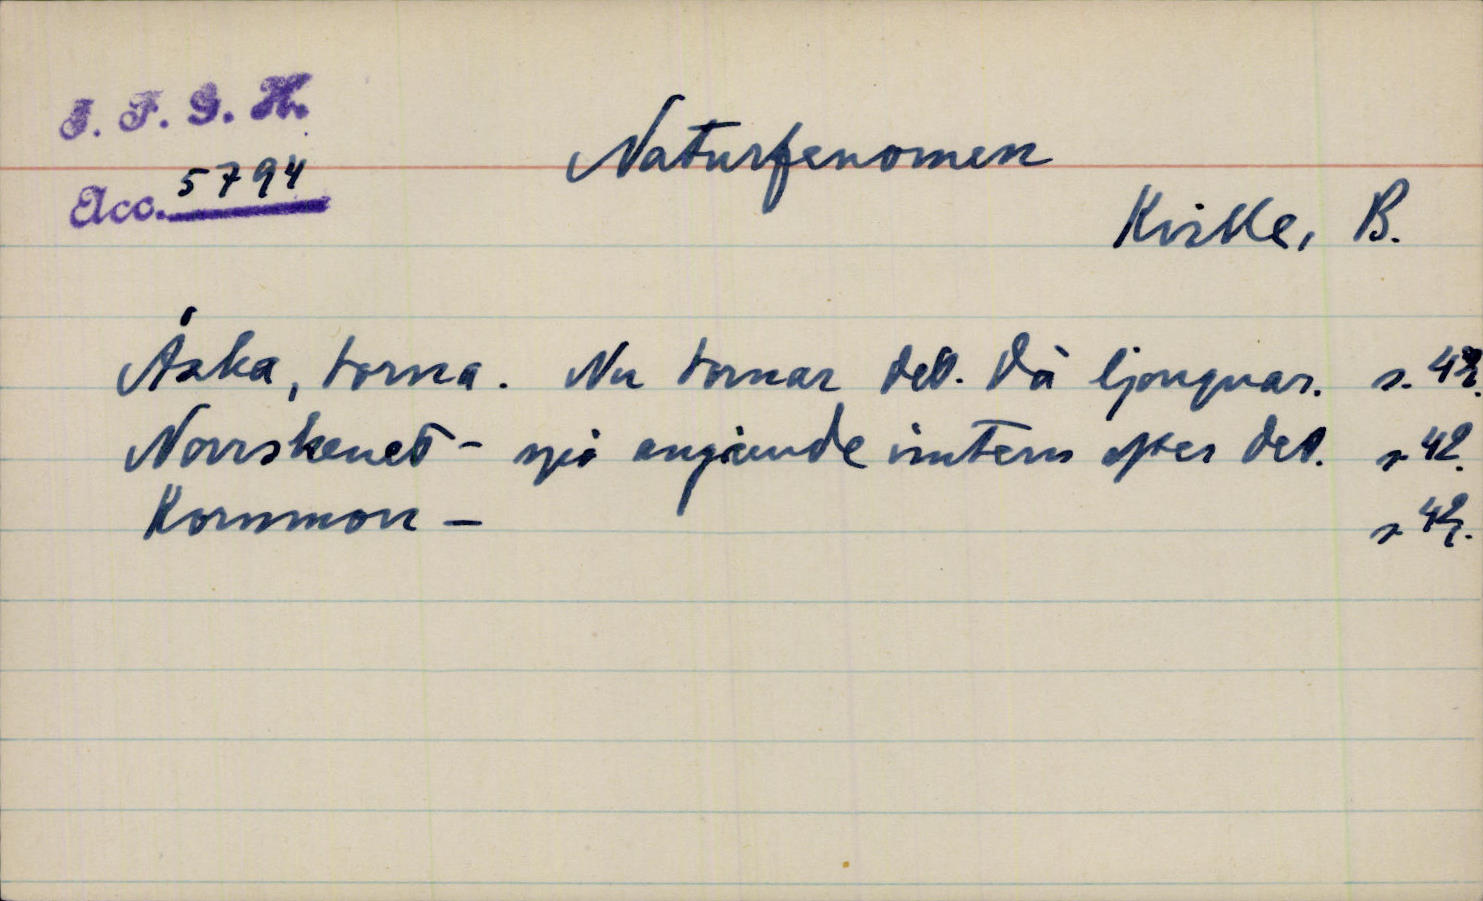 I. F. G. H.
Acc. 5794
Naturfenomen
Kville, B.
Åska, torna. Nu tornar det. Då ljongnar. s. 42.
Norrskenet - spå angående vintern efter det. s 42.
Kornmon - s 42.